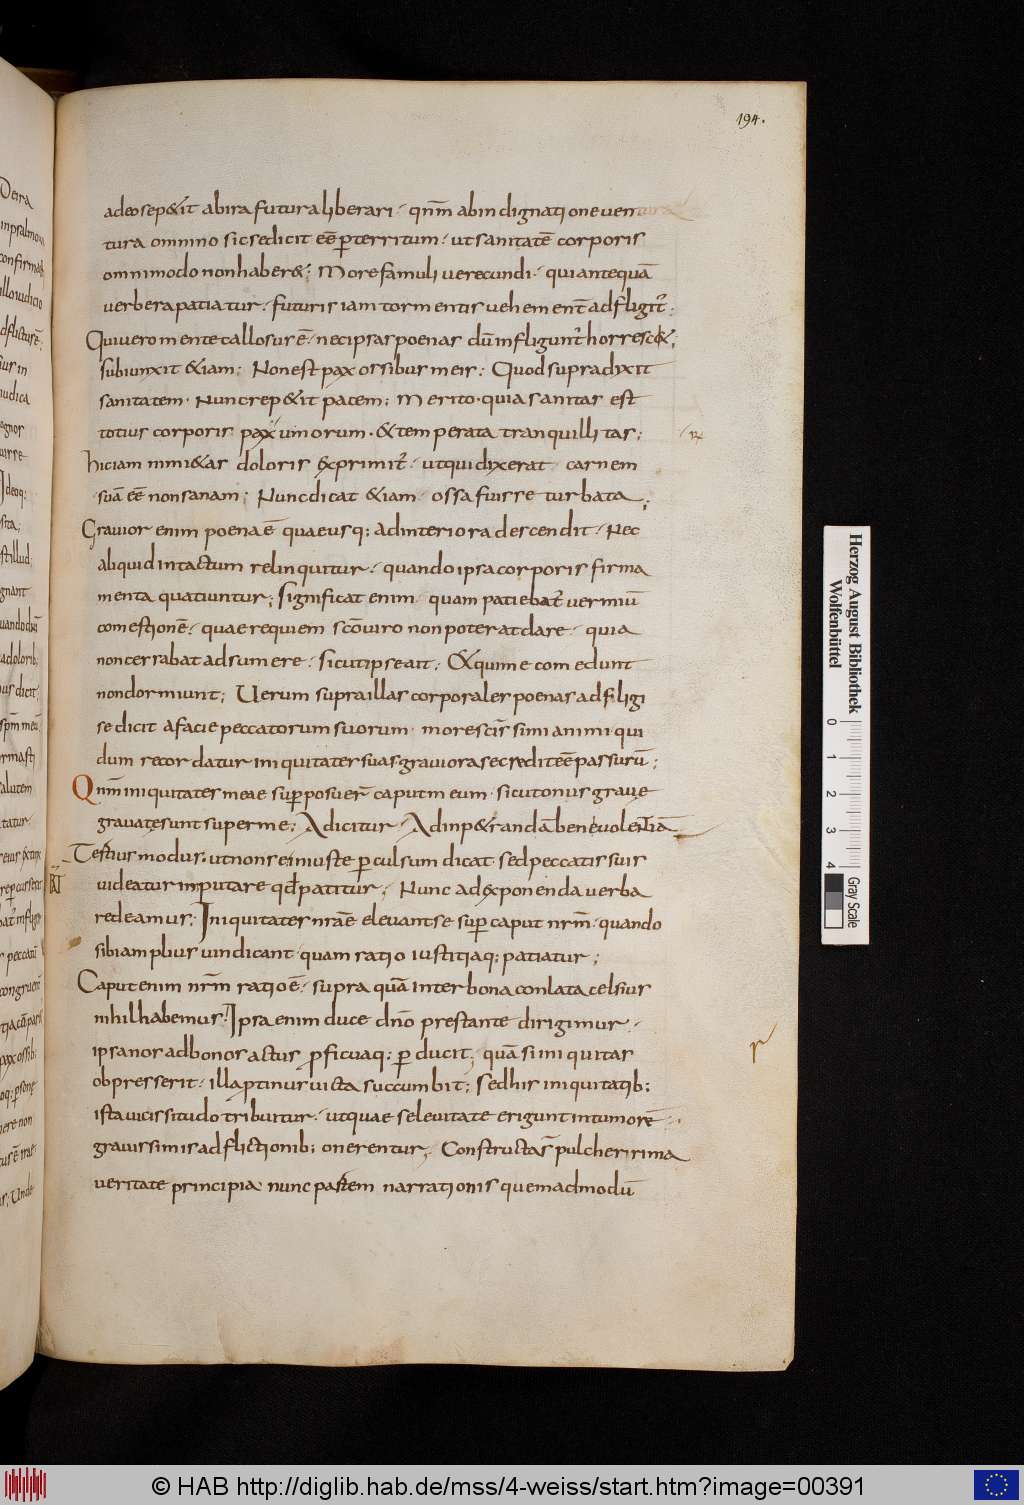 194.
adeo sep&it abira futura liberari · qnm̄ abindignatione ven
tura omnino sic se dicit eē perterritum · ut sanitatē corporis
omnimodo non haber&; More famuli verecundi · qui antequā
verbera patiatur · futuris iam tormentis vehement̄ adfligit̄:
Qui vero mente callosus ē · nec ipsas poenas dū infligunt̄ horresc&;
subiunxit &iam; Non est pax ossibus meis: Quod supra dixit
sanitatem · Nunc rep&it pacem; Merito · quia sanitas est
totius corporis pax umorum · & temperata tranquillitas;
hic iam nimi&as doloris exprimit̄ · ut qui dixerat · carnem
suā eē non sanam; Nunc dicat &iam · ossa fuisse turbata;
Gravior enim poena ē quae usq; ad interiora descendit · Nec
aliquid intactum relinquitur · quando ipsa corporis firma
menta quatiuntur; Significat enim · quam patiebat̄ vermiū
comestionē · quae requiem sc̄o viro non poterat dare · quia
non cessabat adsumere · sicut ipse ait; & qui me comedunt
non dormiunt; Verum supra illas corporales poenas adfligi
se dicit a facie peccatorum suorum · mores cīs simi animi · qui
dum recordatur iniquitates suas graviora se credit eē passurū;
Qnm̄ iniquitates meae superposuer̄ caput meum · sicut onus grave
gravatę sunt super me; Adicitur · Ad inp&randā benevolentiā
Tertius modus; ut non se iniuste perculsum dicat sed peccatis suis
videatur inputare qd̄ patitur; Nunc ad exponenda verba
redeamus; Iniquitates nr̄ae elevant se super caput nr̄m · quando
sibi amplius vindicant quam ratio iustitiaq; patiatur;
Caput enim nr̄m ratio ē · supra quā inter bona conlata celsius
nihil habemus; Ipsa enim duce dn̄o prestante dirigimur ·
ipsa nos ad bonos actus proficuaq; perducit; quā si iniquitas
obpresserit · illa protinus victa succumbit; Sed his iniquitatib;
ista vicissitudo tribuitur · ut quae se levitate erigunt in tumorē ·
gravissimis adflictionib; onerentur; Constructas pulcherrima
veritate principia nunc partem narrationis quemadmodū
Herzog August Bibliothek
Wolfenbüttel
0 1 2 3 4
Gray Scale
© HAB http://diglib.hab.de/mss/4-weiss/start.htm?image=00391